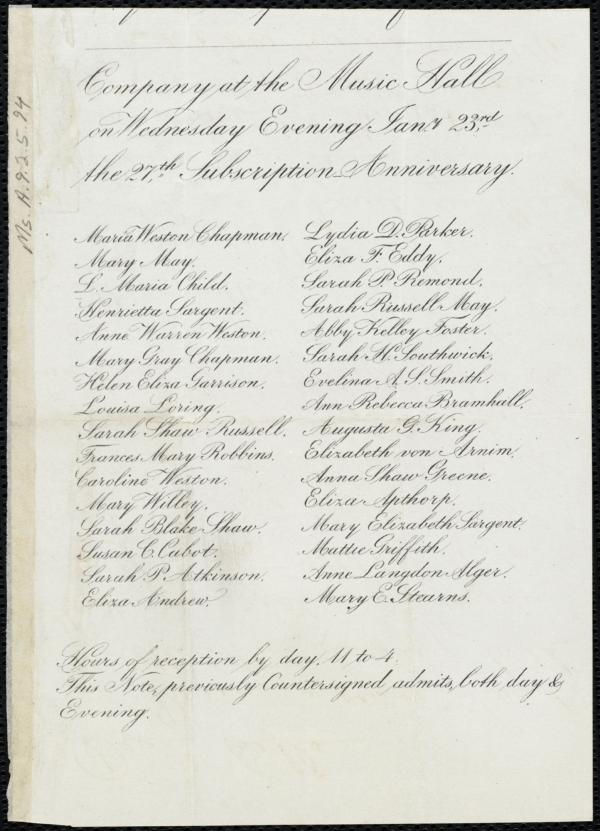 Company at the Music Hall
on Wednesday Evening Jany 23,rd
the 27,th Subscription Anniversary.
Maria Weston Chapman.
Mary May.
L. Maria Child.
Henrietta Sargent.
Anne Warren Weston.
Mary Gray Chapman.
Helen Eliza Garrison.
Louisa Loring.
Sarah Shaw Russell.
Frances Mary Robbins.
Caroline Weston.
Mary Willey.
Sarah Blake Shaw.
Susan C. Cabot.
Sarah P. Atkinson.
Eliza Andrew.
Lydia D. Parker.
Eliza F. Eddy.
Sarah P. Remond.
Sarah Russell May.
Abby Kelley Foster.
Sarah H. Southwick.
Evelina A. S. Smith.
Ann Rebecca Bramhall.
Augusta G. King.
Elizabeth von Arnim.
Anna Shaw Greene.
Eliza Apthorp.
Mary Elizabeth Sargent.
Mattie Griffith.
Anne Langdon Alger.
Mary E. Stearns.
Hours of reception by day, 11 to 4.
This Note, previously Countersigned admits, both day &
Evening.
Ms. A.9.2.5.94